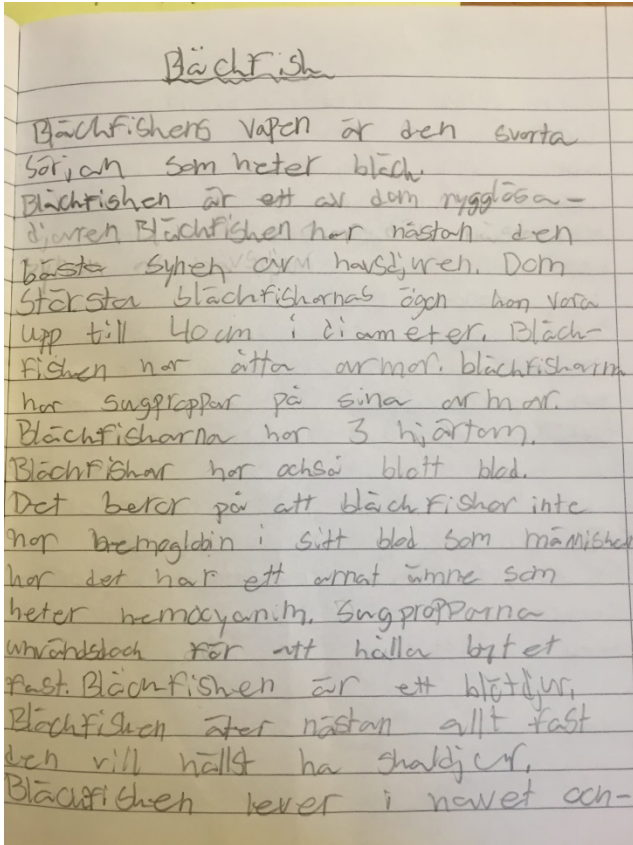 Bläckfisk
Bläckfiskens vapen är den svarta
sörjan som heter bläck.
Bläckfisken är ett av dom rygglösa-
djuren Bläckfisken har nästan den
bästa synen av havsdjuren. Dom
största bläckfiskarnas ögon kan vara
upp till 40 cm i diameter. Bläck-
fisken har åtta armar. bläckfiskarna
har sugproppar på sina armar.
Bläckfiskarna har 3 hjärtan.
Bläckfiskar har också blått blod.
Det beror på att bläckfiskar inte
har hemoglobin i sitt blod som människor
har det har ett annat ämne som
heter hemocyanin. Sugpropparna
används för att hålla bytet
fast. Bläckfisken är ett blötdjur.
Bläckfisken äter nästan allt fast
den vill hällst ha skaldjur.
Bläckfisken lever i havet och-